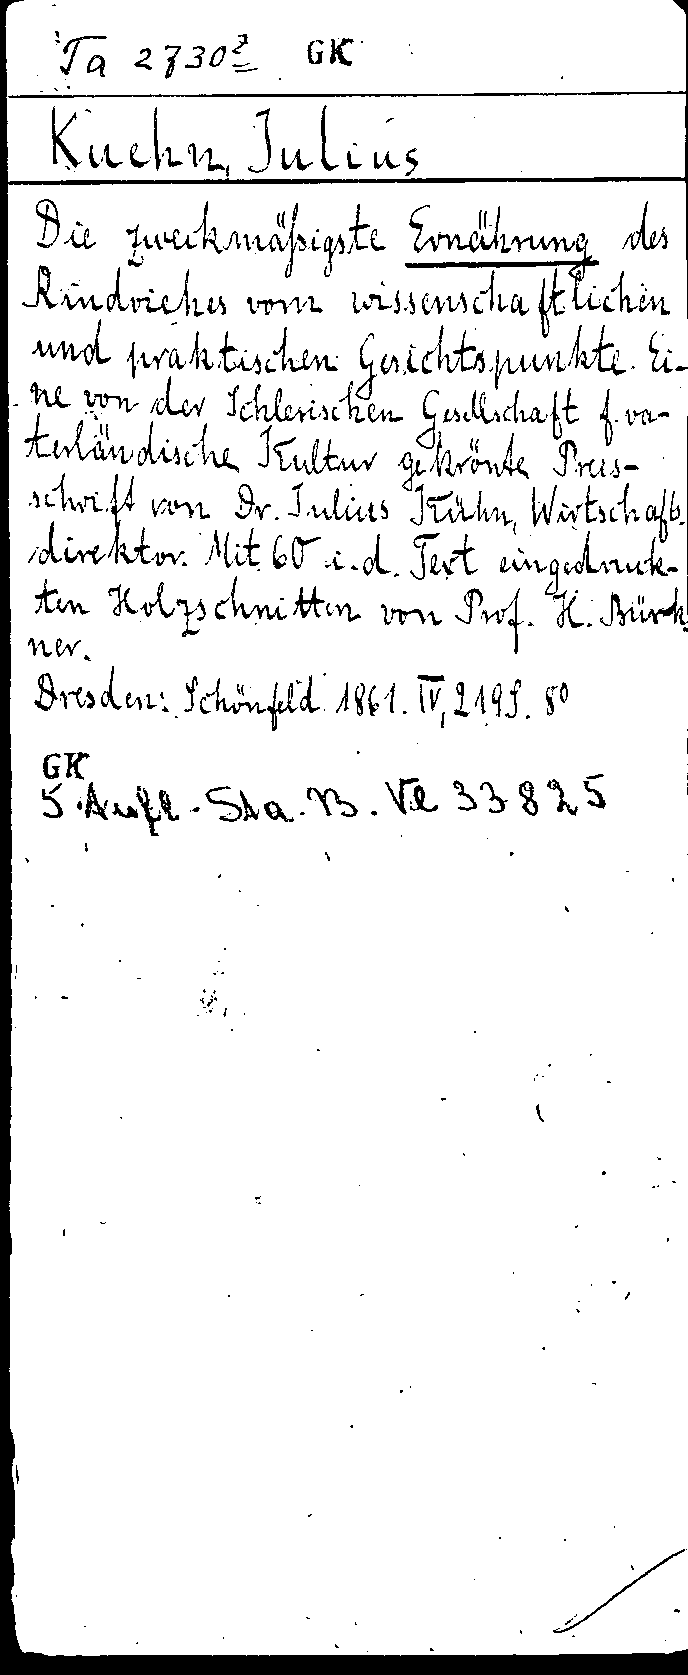 Ta 2730²  GK
Kuehn, Julius
Die zweckmäßigste Ernährung des
Rindviehes vom wissenschaftlichen
und praktischen Gesichtspunkte. Ei-
ne von der Schlesischen Gesellschaft f. va-
terländische Kultur gekrönte Preis-
schrift von Dr. Julius Kühn, Wirtschafts-
direktor. Mit 60 i. d. Text eingedruck-
ten Holzschnitten von Prof. H. Bürk-
ner.
Dresden: Schönfeld 1861. IV, 219 S. 8°
GK
5. Aufl. Sta. B. Ve 33825